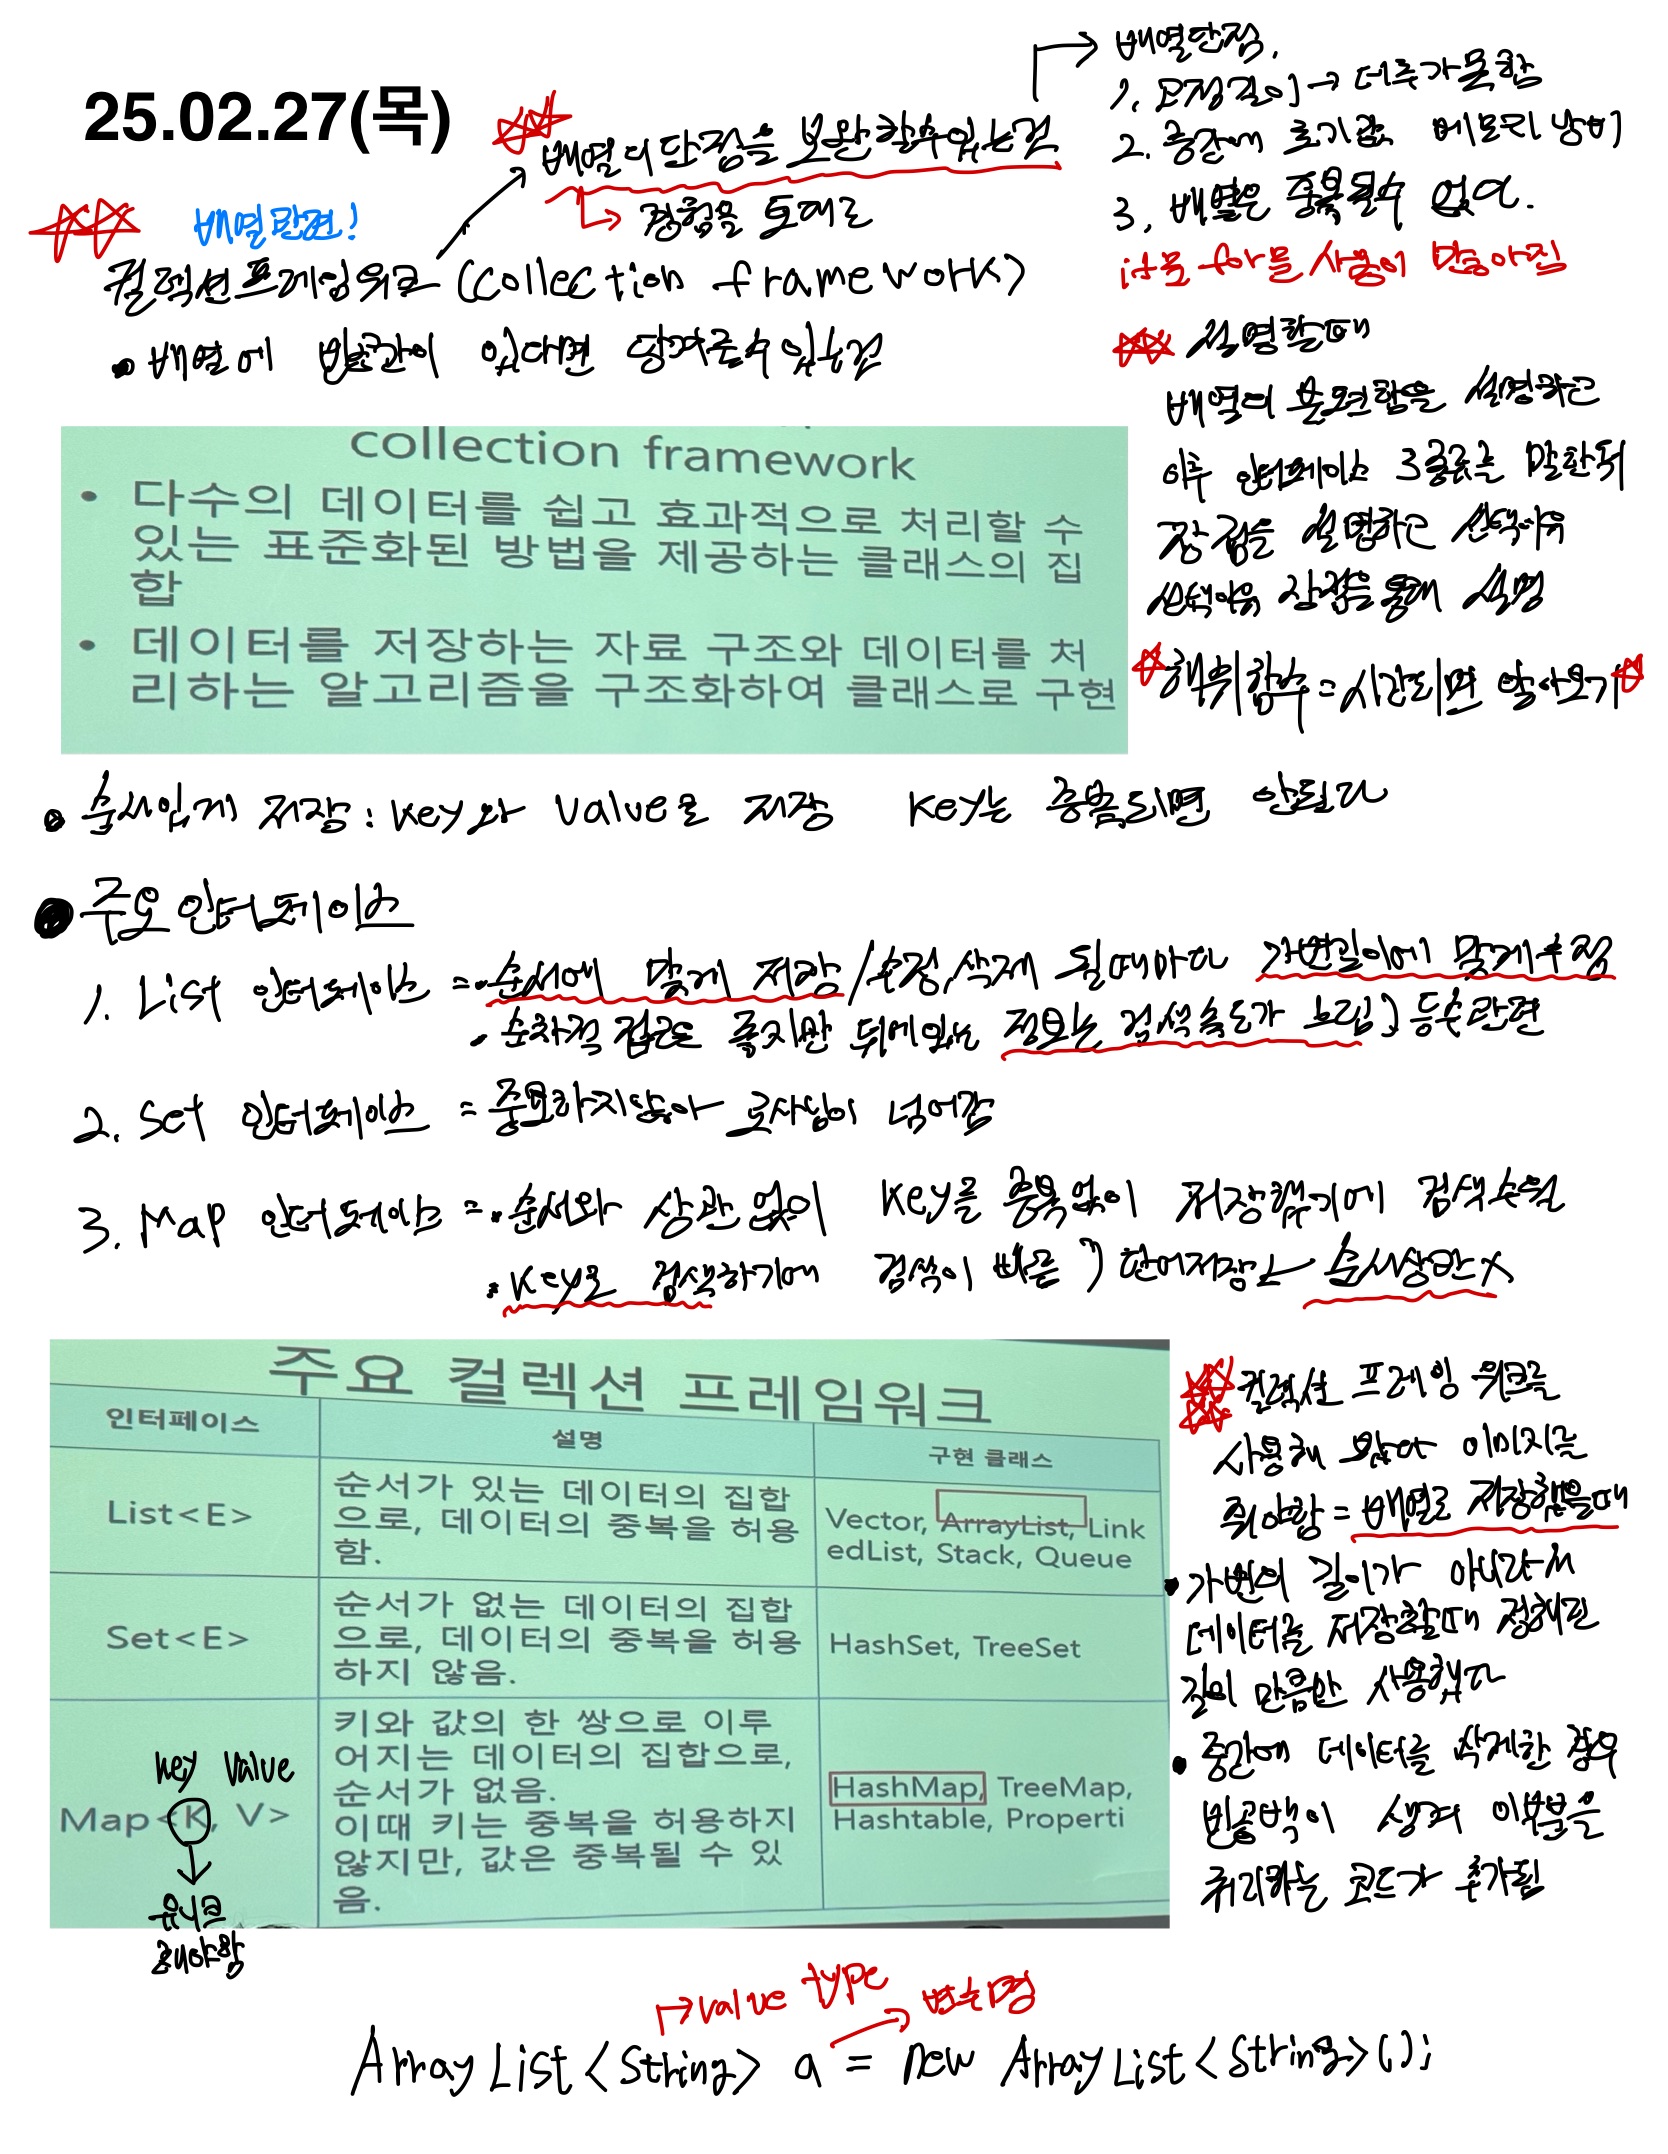 25.02.27(목)
배열의 단점을 보완할수있는것
경험을 토대로
배열단점.
1. 고정길이 → 더추가못함
2. 중간에 초기값 메모리 낭비
3. 배열은 중복될수 없다.
if문 for문 사용이 많아짐
배열만편!
컬렉션프레임워크 (collection framework)
• 배열에 빈공간이 있다면 당겨줄수있는것
설명할때
배열의 불편함을 설명하고
이후 인터페이스 3종류를 말한뒤
장점을 설명하고 선택이유
선택이유 장점을통해 설명
해쉬함수 = 시간되면 알아오기
collection framework
• 다수의 데이터를 쉽고 효과적으로 처리할 수
있는 표준화된 방법을 제공하는 클래스의 집
합
• 데이터를 저장하는 자료 구조와 데이터를 처
리하는 알고리즘을 구조화하여 클래스로 구현
• 순서있게 저장 : key와 value로 저장 key는 중복되면 안된다
• 주요인터페이스
1. List 인터페이스 = • 순서에 맞게 저장 / 수정,삭제 될때마다 가변길이에 맞게수정
• 순차적 접근은 좋지만 뒤에있는 정보는 검색속도가 느림 등수관련
2. Set 인터페이스 = 중요하지않아 넘어감
3. Map 인터페이스 = • 순서와 상관없이 key를 중복없이 저장했기에 검색수월
• key로 검색하기에 검색이 빠른 단어저장 순서상관x
주요 컬렉션 프레임워크
인터페이스 설명 구현 클래스
List<E>
순서가 있는 데이터의 집합
으로, 데이터의 중복을 허용
함.
Vector, ArrayList, Link
edList, Stack, Queue
Set<E>
순서가 없는 데이터의 집합
으로, 데이터의 중복을 허용
하지 않음.
HashSet, TreeSet
key value
Map<K, V>
유니크
해야함
키와 값의 한 쌍으로 이루
어지는 데이터의 집합으로,
순서가 없음.
이때 키는 중복을 허용하지
않지만, 값은 중복될 수 있
음.
HashMap, TreeMap,
Hashtable, Properti
컬렉션 프레임 워크를
사용해 봤다 이미지를
줘야함 = 배열로 저장했을때
• 가변의 길이가 아니라서
데이터를 저장할때 정해진
길이 만큼만 사용했다
• 중간에 데이터를 삭제한 경우
빈공백이 생겨 이부분을
처리하는 코드가 추가됨
value type
변수명
ArrayList<String> a = new ArrayList<String>();